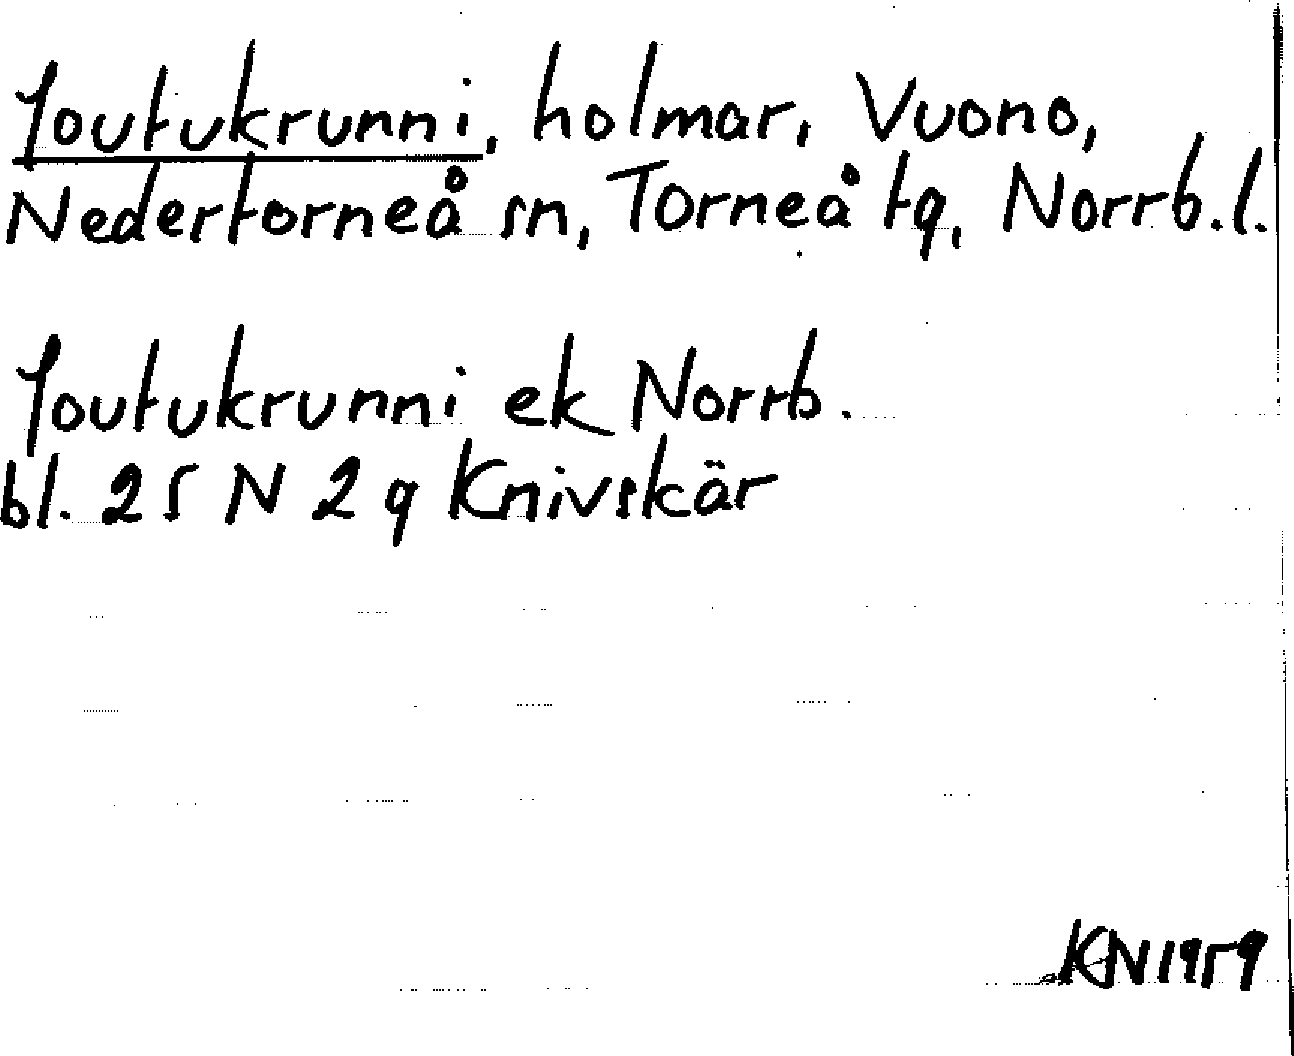 Joutukrunni, holmar, Vuono,
Nedertorneå sn, Torneå tg, Norrb.l.
Joutukrunni ek Norrb.
bl. 25 N 2 g Knivskär
KN 1959